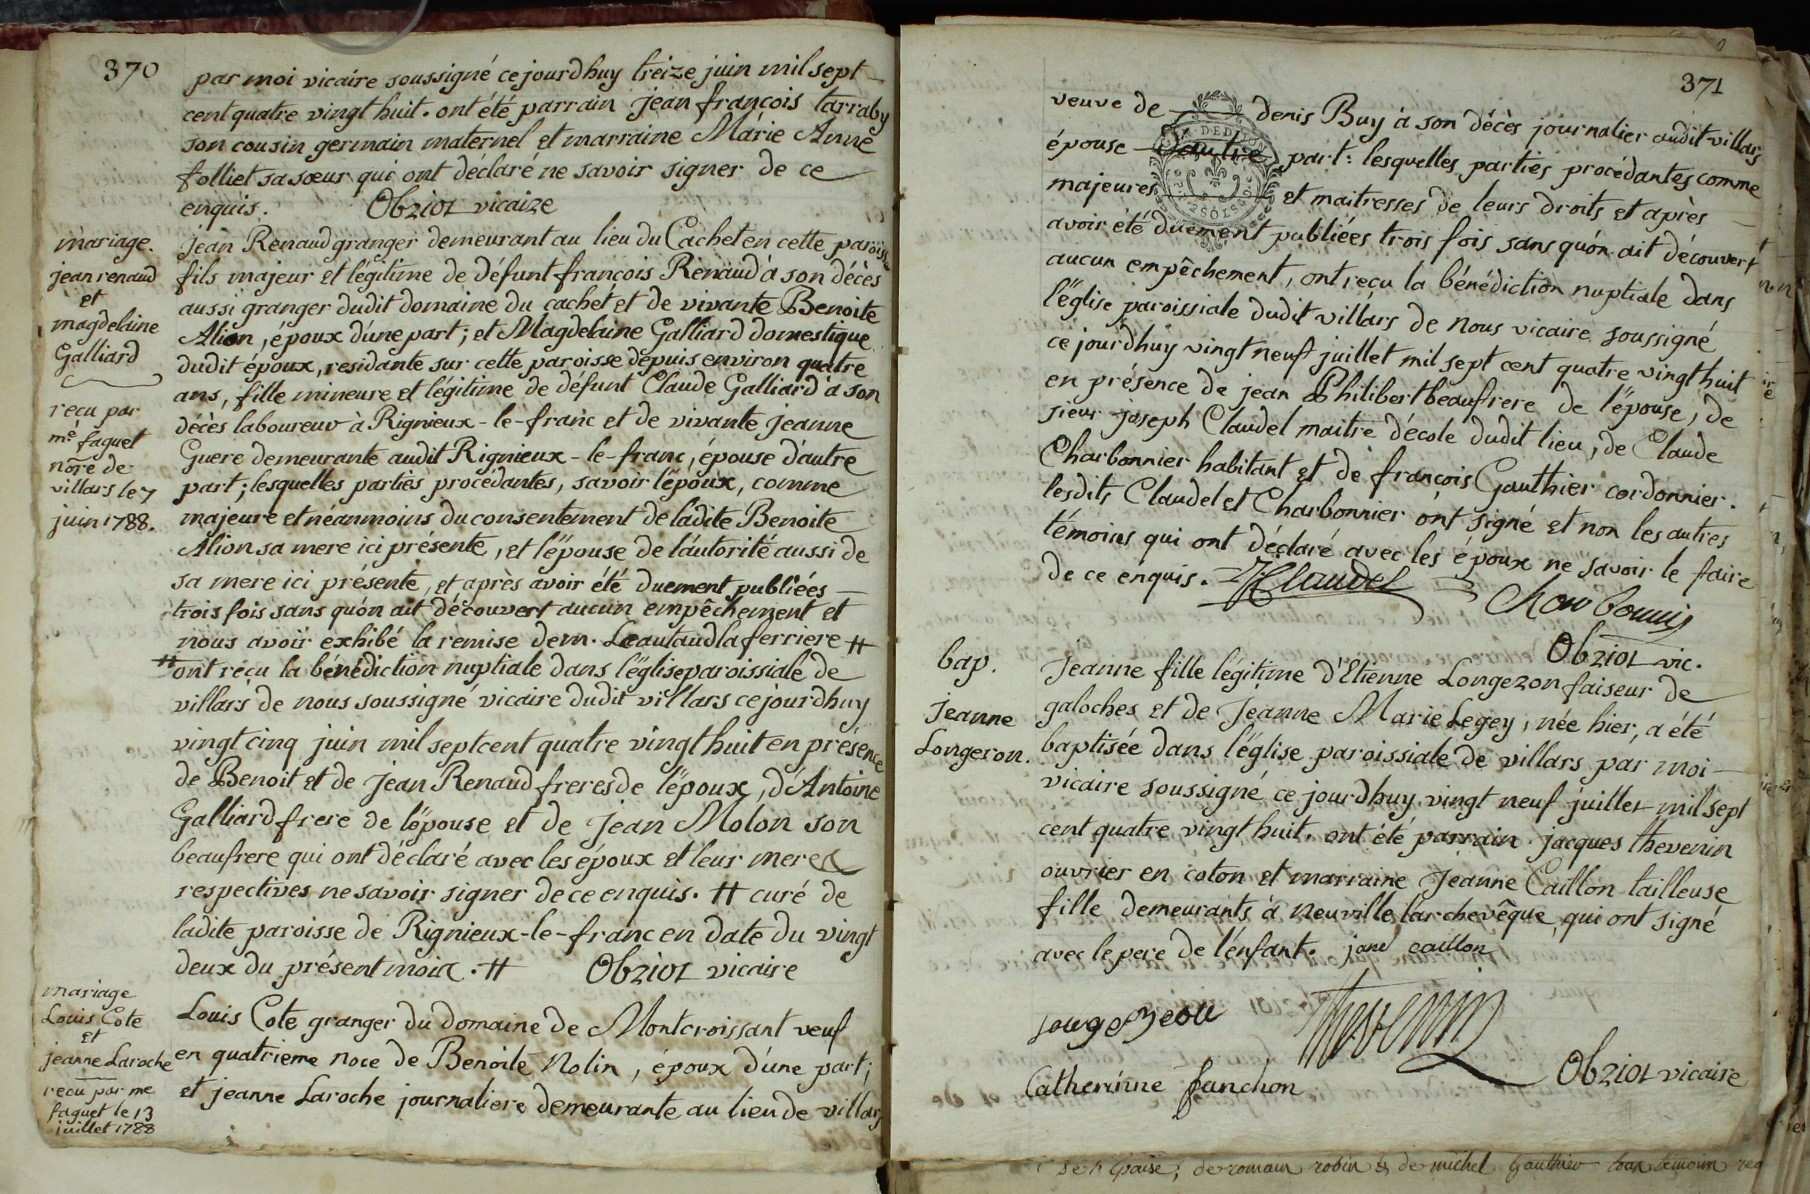 370
par moi vicaire soussigné ce jourdhuy treize juin mil sept
cent quatre vingt huit. ont été parrain jean françois tarraby
son cousin germain maternel et marraine Marie Anne
folliet sa sœur qui ont déclaré ne savoir signer de ce
enquis. Obriot vicaire
mariage.
jean renaud
et
magdelaine
Galliard
recu par
me. faguet
nore de
villars le 7
juin 1788.
jean Renaud granger demeurant au lieu du Cachet en cette paroisse
fils majeur et légitime de défunt françois Renaud à son décès
aussi granger dudit domaine du cachet et de vivante Benoite
Alion, époux d'une part; et Magdelaine Galliard domestique
dudit époux, residante sur cette paroisse depuis environ quatre
ans, fille mineure et légitime de défunt Claude Galliard à son
décès laboureur à Rignieux-le-franc et de vivante jeanne
Guere demeurante audit Rignieux-le-franc, épouse d'autre
part; lesquelles parties procédantes, savoir l'époux, comme
majeure et néanmoins du consentement de ladite Benoite
Alion sa mere ici présente, et l'épouse de l'autorité aussi de
sa mere ici présente, et après avoir été duement publiées
trois fois sans qu'on ait découvert aucun empêchement et
nous avoir exhibé la remise de m. Leautaud laferriere #
# ont reçu la bénédiction nuptiale dans l'église paroissiale de
villars de nous soussigné vicaire dudit villars ce jourdhuy
vingt cinq juin mil sept cent quatre vingt huit en présence
de Benoit et de jean Renaud freres de l'époux, d'Antoine
Galliard frere de l'épouse et de jean Molon son
beaufrere qui ont déclaré avec les époux et leur meres
respectives ne savoir signer de ce enquis. # curé de
ladite paroisse de Rignieux-le-franc en date du vingt
deux du présent mois. # Obriot vicaire
mariage
Louis Cote
et
jeanne Laroche
recu par me
faguet le 13
juillet 1788
Louis Cote granger du domaine de Montcroissant veuf
en quatrieme noce de Benoite Nolin, époux d'une part;
et jeanne Laroche journaliere demeurante au lieu de villars
371
veuve de denis Buy à son décès journalier audit villars
épouse d'autre part: lesquelles parties procédantes comme
majeures et maitresses de leurs droits et après
avoir été duement publiées trois fois sans qu'on ait découvert
aucun empêchement, ont reçu la bénédiction nuptiale dans
l'église paroissiale dudit villars de nous vicaire soussigné
ce jourdhuy vingt neuf juillet mil sept cent quatre vingt huit
en présence de jean Philibert beaufrere de l'épouse, de
sieur joseph Claudel maitre d'école dudit lieu, de Claude
Charbonnier habitant et de françois Gauthier cordonnier.
lesdits Claudel et Charbonnier ont signé et non les autres
témoins qui ont déclaré avec les époux ne savoir le faire
de ce enquis. Claudel
Obriot vic.
bap.
Jeanne
Longeron.
Jeanne fille légitime d'Etienne Longezon faiseur de
galoches et de Jeanne Marie Legey, née hier, a été
baptisée dans l'église paroissiale de villars par moi
vicaire soussigné ce jourdhuy vingt neuf juillet mil sept
cent quatre vingt huit. ont été parrain jacques thevenin
ouvrier en coton et marraine Jeanne Caillon tailleuse
fille demeurants à neuville l'archevêque, qui ont signé
avec le pere de l'enfant. jane caillon
Thevenin
Catherinne fanchon
Obriot vicaire
de romain robin & de michel Gauthier